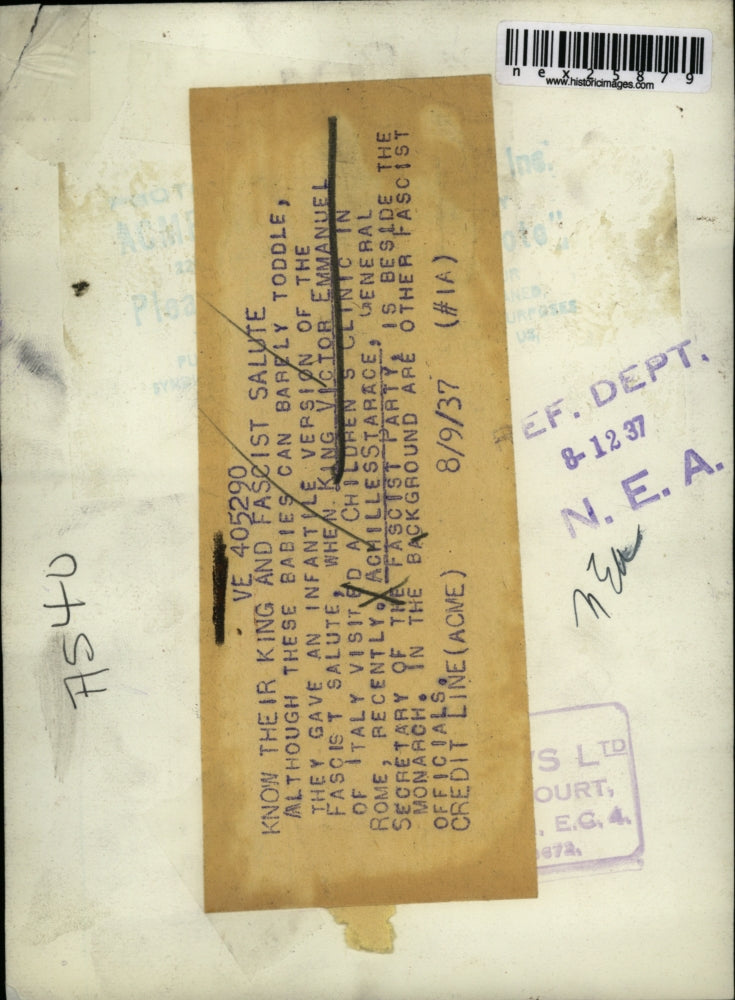 nex25879
www.historicimages.com
VE 405290
KNOW THEIR KING AND FASCIST SALUTE
ALTHOUGH THESE BABIES CAN BARELY TODDLE,
THEY GAVE AN INFANTILE VERSION OF THE
FASCIST SALUTE, WHEN KING VICTOR EMMANUEL
OF ITALY VISITED A CHILDREN'S CLINIC IN
ROME, RECENTLY. ACHILLESSTARACE, GENERAL
SECRETARY OF THE FASCIST PARTY, IS BESIDE THE
MONARCH. IN THE BACKGROUND ARE OTHER FASCIST
OFFICIALS.
CREDIT LINE(ACME) 8/9/37 (#1A)
EF. DEPT.
8-12 37
N. E. A.
A540
Inc.
ACME
S LTD
OURT,
, E.C. 4.